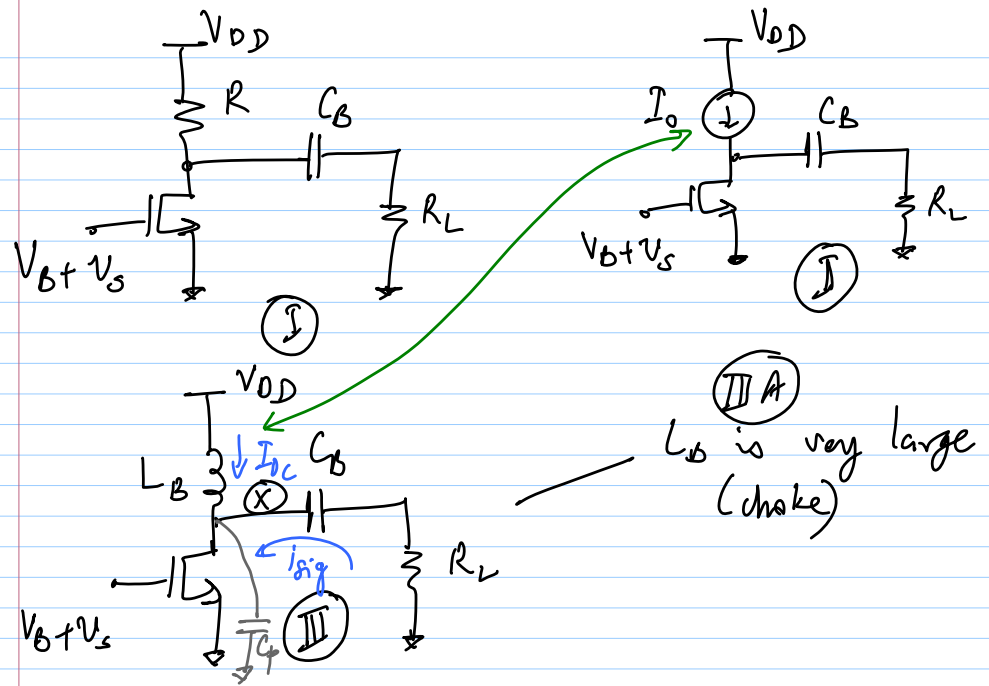 V_DD
R
C_B
R_L
V_B + v_s
I
V_DD
I_o
C_B
R_L
V_B + v_s
II
V_DD
L_B
I_DC
C_B
X
i_sig
R_L
V_B + v_s
III
C_p
III A
L_B is very large
(choke)